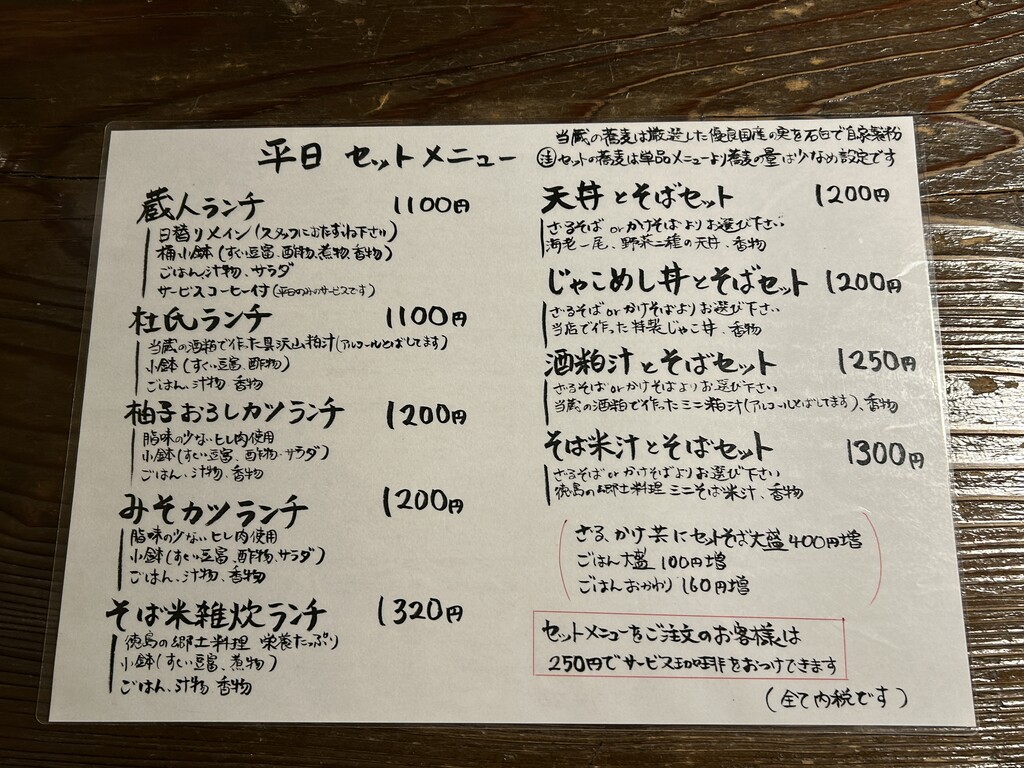 平日 セットメニュー
当蔵の蕎麦は厳選した優良国産の実を石臼で自家製粉
注 セットの蕎麦は単品メニューより蕎麦の量は少なめ設定です
蔵人ランチ 1100円
日替りメイン(スタッフにおたずね下さい)
桶小鉢(すくい豆富、酢物、煮物、香物)
ごはん、汁物、サラダ
サービスコーヒー付(平日のみのサービスです)
杜氏ランチ 1100円
当蔵の酒粕で作った具沢山粕汁(アルコールとばしてます)
小鉢(すくい豆富、酢物)
ごはん、汁物 香物
柚子おろしカツランチ 1200円
脂味の少ないヒレ肉使用
小鉢(すくい豆富、酢物、サラダ)
ごはん、汁物、香物
みそカツランチ 1200円
脂味の少ないヒレ肉使用
小鉢(すくい豆富、酢物、サラダ)
ごはん、汁物、香物
そば米雑炊ランチ 1320円
徳島の郷土料理 栄養たっぷり
小鉢(すくい豆富、煮物)
ごはん、汁物 香物
天丼とそばセット 1200円
ざるそば or かけそばよりお選び下さい
海老一尾、野菜二種の天丼、香物
じゃこめし丼とそばセット 1200円
ざるそば or かけそばよりお選び下さい
当店で作った特製じゃこ丼、香物
酒粕汁とそばセット 1250円
ざるそば or かけそばよりお選び下さい
当蔵の酒粕で作ったミニ粕汁(アルコールとばしてます)、香物
そば米汁とそばセット 1300円
ざるそば or かけそばよりお選び下さい
徳島の郷土料理 ミニそば米汁、香物
ざる、かけ共にセットそば大盛400円増
ごはん大盛 100円増
ごはんおかわり 160円増
セットメニューをご注文のお客様は
250円でサービス珈琲をおつけできます
(全て内税です)